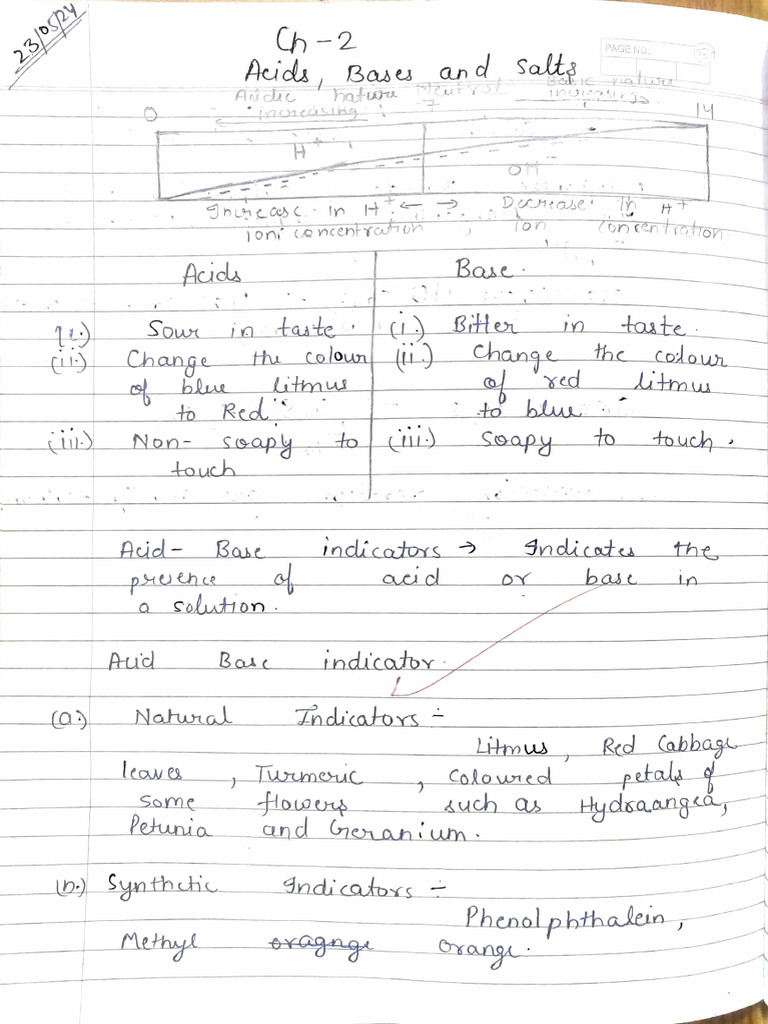 23/05/24
Ch-2
PAGE NO.
Acids, Bases and salts
Acidic nature Neutral Basic nature
0 increasing 7 increasing 14
H+
OH
Increase in H+ ← → Decrease in H+
ion concentration, ion concentration
Acids Base.
(i.) Sour in taste. (i.) Bitter in taste.
(ii) Change the colour (ii.) Change the colour
of blue litmus of red litmus
to Red. to blue.
(iii.) Non- soapy to (iii.) Soapy to touch.
touch
Acid- Base indicators → Indicates the
presence of acid or base in
a solution.
Acid Base indicator.
(a.) Natural Indicators :-
Litmus, Red Cabbage
leaves, Turmeric, Coloured petals of
some flowers such as Hydraangea,
Petunia and Geranium.
(b.) Synthetic Indicators :-
Phenolphthalein,
Methyl oragnge orange.